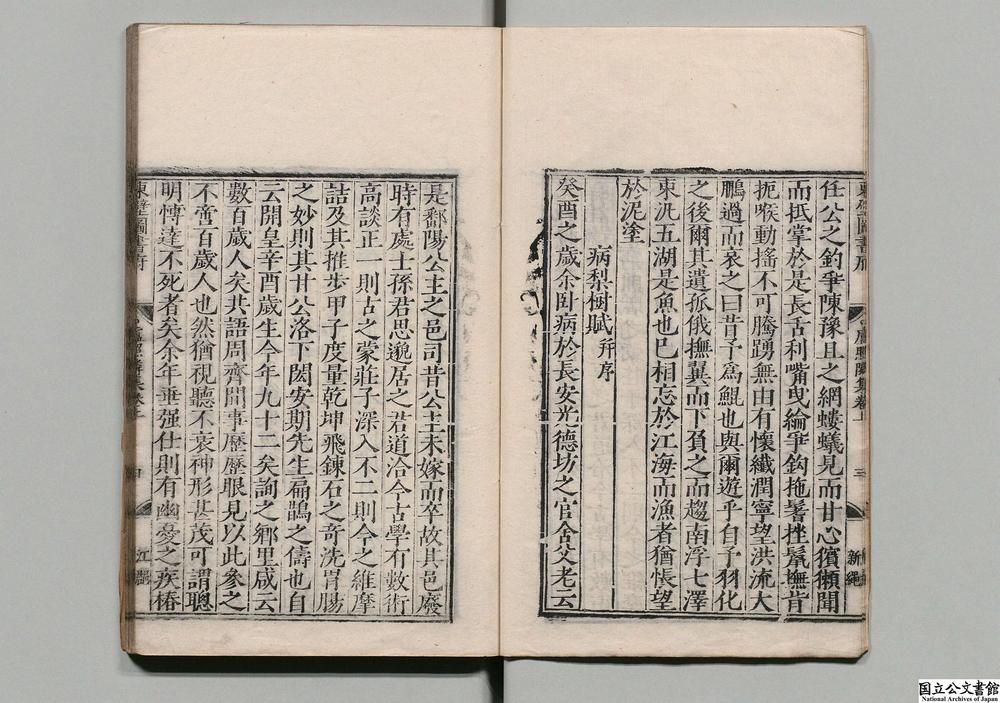 任公之釣爭陳豫且之網螻蟻見而甘心獱獺聞
而抵掌於是長舌利嘴曳綸爭鈎拖鬐挫鬣撫背
扼喉動搖不可騰踴無由有懷纖潤寧望洪流大
鵬過而哀之曰昔予爲鯤也與爾遊乎自予羽化
之後爾其遺孤俄撫翼而下負之而趨南浮七澤
東汎五湖是魚也已相忘於江海而漁者猶悵望
於泥塗
病梨樹賦 并序
癸酉之歲余臥病於長安光德坊之官舍父老云
三
新繩
是鄱陽公主之邑司昔公主未嫁而卒故其邑廢
時有處士孫君思邈居之君道洽今古學有數術
高談正一則古之蒙莊子深入不二則今之維摩
詰及其推步甲子度量乾坤飛鍊石之奇洗胃腸
之妙則其甘公洛下閎安期先生扁鵲之儔也自
云開皇辛酉歲生今年九十二矣詢之鄉里咸云
數百歲人矣共語周齊間事歷歷眼見以此參之
不啻百歲人也然猶視聽不衰神形甚茂可謂聰
明愽達不死者矣余年垂强仕則有幽憂之疾椿
東壁圖書府
国立公文書館
National Archives of Japan